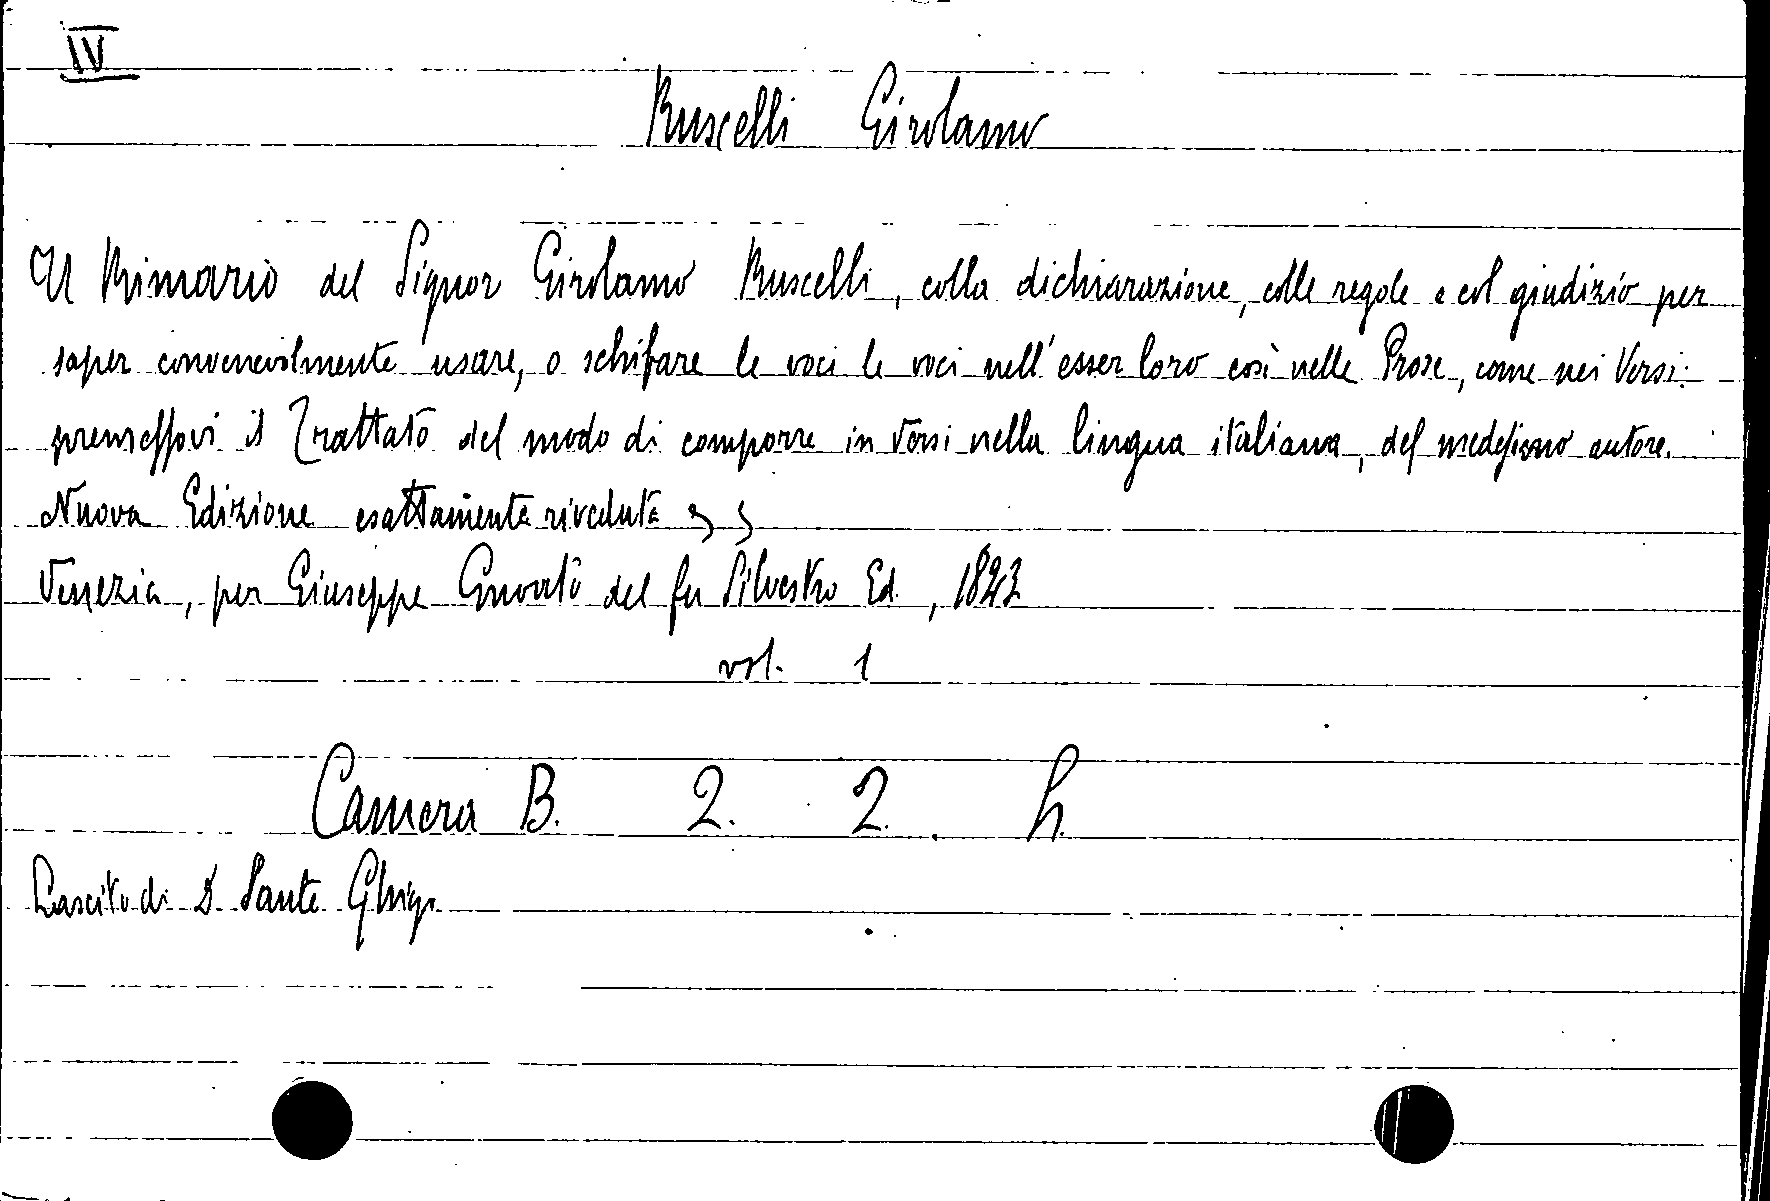 IV
Ruscelli Girolamo
Il Rimario del Signor Girolamo Ruscelli, colla dichiarazione, colle regole e col giudizio per
saper convenevolmente usare, o schifare le voci le voci nell'esser loro così nelle Prose, come nei Versi:
premessovi il Trattato del modo di comporre in versi nella lingua italiana, del medesimo autore.
Nuova Edizione esattamente riveduta
Venezia, per Giuseppe del fu Silvestro Ed., 1823
vol. 1
Camera B. 2. 2. h.
Lascito di D Sante Ghigi